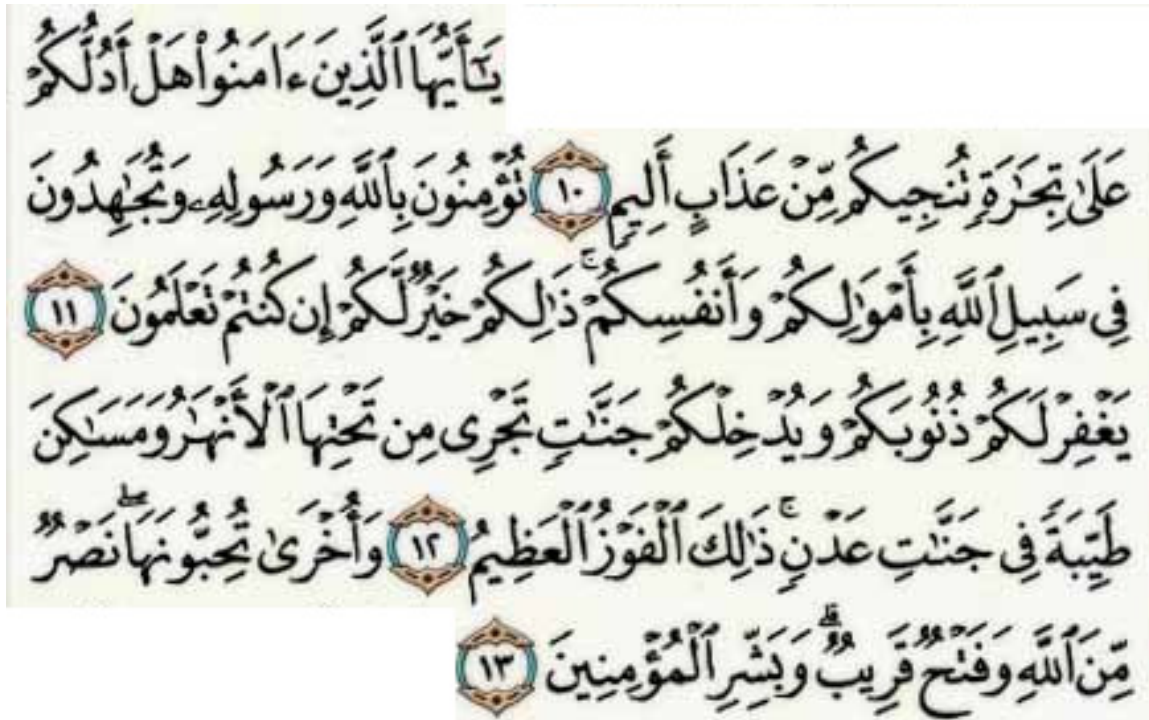 يَـٰٓأَيُّهَا ٱلَّذِينَ ءَامَنُوا۟ هَلْ أَدُلُّكُمْ
عَلَىٰ تِجَـٰرَةٍ تُنجِيكُم مِّنْ عَذَابٍ أَلِيمٍ ١٠ تُؤْمِنُونَ بِٱللَّهِ وَرَسُولِهِۦ وَتُجَـٰهِدُونَ
فِى سَبِيلِ ٱللَّهِ بِأَمْوَٰلِكُمْ وَأَنفُسِكُمْ ۚ ذَٰلِكُمْ خَيْرٌ لَّكُمْ إِن كُنتُمْ تَعْلَمُونَ ١١
يَغْفِرْ لَكُمْ ذُنُوبَكُمْ وَيُدْخِلْكُمْ جَنَّـٰتٍ تَجْرِى مِن تَحْتِهَا ٱلْأَنْهَـٰرُ وَمَسَـٰكِنَ
طَيِّبَةً فِى جَنَّـٰتِ عَدْنٍ ۚ ذَٰلِكَ ٱلْفَوْزُ ٱلْعَظِيمُ ١٢ وَأُخْرَىٰ تُحِبُّونَهَا ۖ نَصْرٌ
مِّنَ ٱللَّهِ وَفَتْحٌ قَرِيبٌ ۗ وَبَشِّرِ ٱلْمُؤْمِنِينَ ١٣